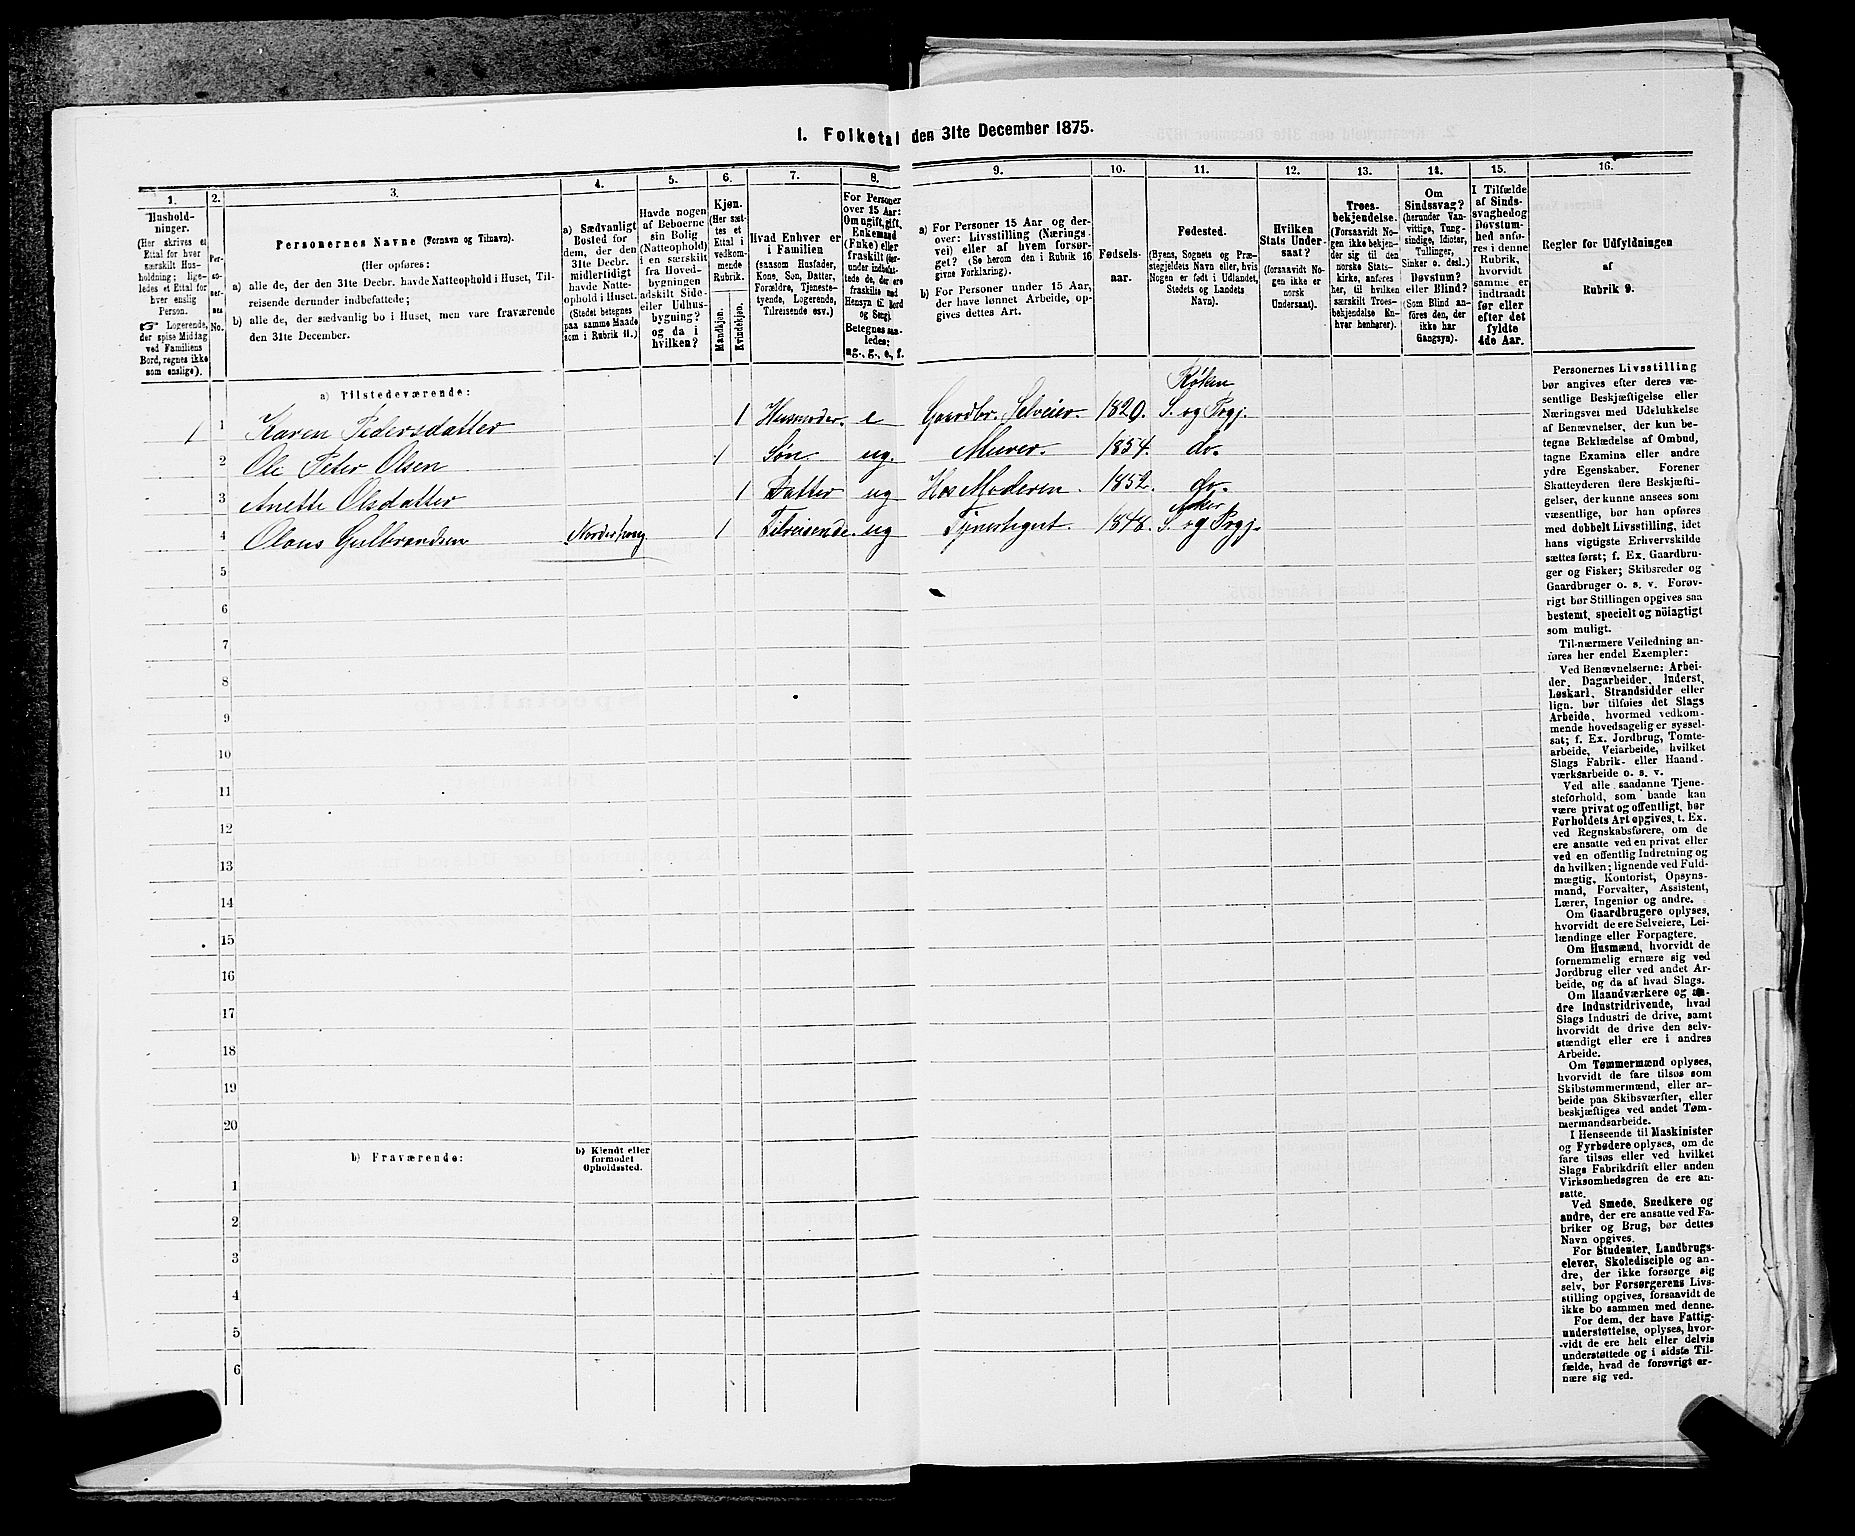 1. Folketal den 31te December 1875.
1. 2. 3. 4. 5. 6. 7. 8. 9. 10. 11. 12. 13. 14. 15. 16.
Hushold-
ninger.
(Her skrives et
Ettal for hver
særskilt Hus-
holdning; lige-
ledes et Ettal for
hver enslig
Person.
☞ Logerende,
der spise Middag
ved Familiens
Bord, regnes ikke
som enslige).
Per-
so-
ner-
nes
No.
Personernes Navne (Fornavn og Tilnavn).
(Her opføres:
a) alle de, der den 31te Decbr. havde Natteophold i Huset, Til-
reisende derunder indbefattede;
b) alle de, der sædvanlig bo i Huset, men vare fraværende
den 31te December.
a) Sædvanligt
Bosted for
dem, der den
31te Decbr.
midlertidigt
havde Natte-
ophold i Huset.
(Stedet betegnes
paa samme Maade
som i Rubrik 11.)
Havde nogen
af Beboerne
sin Bolig
(Natteophold)
i en særskilt
fra Hoved-
bygningen
adskilt Side-
eller Udhus-
bygning?
og da i
hvilken?
Kjøn.
(Her sæt-
tes et
Ettal i
vedkom-
mende
Rubrik.
Mandkjøn.
Kvindekjøn.
Hvad Enhver er
i Familien
(saasom Husfader,
Kone, Søn, Datter,
Forældre, Tjeneste-
tyende, Logerende,
Tilreisende osv.)
For Personer
over 15 Aar:
Om ugift, gift,
Enkemand
(Enke) eller
fraskilt (der-
under indbefat-
tede de, der ere
fraskilte med
Hensyn til Bord
og Seng).
Betegnes saa-
ledes:
ug., g., e., f.
a) For Personer 15 Aar og der-
over: Livsstilling (Nærings-
vei) eller af hvem forsør-
get? (Se herom den i Rubrik 16
givne Forklaring).
b) For Personer under 15 Aar,
der have lønnet Arbeide, op-
gives dettes Art.
Fødsels-
aar.
Fødested.
(Byens, Sognets og Præ-
stegjeldets Navn eller, hvis
Nogen er født i Udlandet,
Stedets og Landets
Navn).
Hvilken
Stats Under-
saat?
(forsaavidt No-
gen ikke er
norsk
Undersaat).
Troes-
bekjendelse.
(Forsaavidt No-
gen ikke bekjen-
der sig til den
norske Stats-
kirke, anføres
her, til hvilken
særskilt Troes-
bekjendelse En-
hver henhører).
Om
Sindssvag?
(herunder Van-
vittige, Tung-
sindige, Idioter,
Tullinger,
Sinker o. desl.)
Døvstum?
eller Blind?
(Som Blind an-
føres den, der
ikke har
Gangsyn).
I Tilfælde
af Sinds-
svaghed og
Døvstum-
hed anfø-
res i denne
Rubrik,
hvorvidt
samme er
indtraadt
før eller
efter det
fyldte
4de Aar.
Regler for Udfyldningen
af
Rubrik 9.
a) Tilstedeværende:
1 1 Karen Pedersdatter 1 Husmoder. e Gaardbr. Selveier. 1820. Røken S. og Prgj.
2 Ole Peter Olsen 1 Søn ug. Murer. 1854. do.
3 Anette Olsdatter 1 Datter ug Hos Moderen. 1852. do.
4 Olaus Gulbrandsen Norderhoug 1 Tilreisende ug 1848. Asker S. og Prgj.
5
6
7
8
9
10
11
12
13
14
15
16
17
18
19
20
b) Fraværende:
b) Kjendt eller
formodet
Opholdssted.
1
2
3
4
5
6
Personernes Livsstilling
bør angives efter deres væ-
sentlige Beskjæftigelse eller
Næringsvei med Udelukkelse
af Benævnelser, der kun be-
tegne Beklædelse af Ombud,
tagne Examina eller andre
ydre Egenskaber. Forener
Skatteyderen flere Beskjæfti-
gelser, der kunne ansees som
væsentlige, bør han opføres
med dobbelt Livsstilling, idet
hans vigtigste Erhvervskilde
sættes først; f. Ex. Gaardbru-
ger og Fisker; Skibsreder og
Gaardbruger o. s. v. Forøv-
rigt bør Stillingen opgives saa
bestemt, specielt og nøiagtigt
som muligt.
Til nærmere Veiledning an-
føres her endel Exempler:
Ved Benævnelserne: Arbei-
der, Dagarbeider, Inderst,
Løskarl, Strandsidder eller
lign. bør tilføies det Slags
Arbeide, hvormed vedkom-
mende hovedsagelig er syssel-
sat; f. Ex. Jordbrug, Tomte-
arbeide, Veiarbeide, hvilket
Slags Fabrik- eller Haand-
værksarbeide o. s. v.
Ved alle saadanne Tjene-
steforhold, som baade kan
være privat og offentligt, bør
Forholdets Art opgives, t. Ex.
ved Regnskabsførere, om de
ere ansatte ved en privat eller
ved en offentlig Indretning og
da hvilken; lignende ved Fuld-
mægtig, Kontorist, Opsyns-
mand, Forvalter, Assistent,
Lærer, Ingeniør og andre.
Om Gaardbrugere oplyses,
hvorvidt de ere Selveiere, Lei-
lændinge eller Forpagtere.
Om Husmænd, hvorvidt de
fornemmelig ernære sig ved
Jordbrug eller ved andet Ar-
beide, og da af hvad Slags.
Om Haandværkere og an-
dre Industridrivende, hvad
Slags Industri de drive, samt
hvorvidt de drive den selv-
stændigt eller ere i andres
Arbeide.
Om Tømmermænd oplyses,
hvorvidt de fare tilsøs som
Skibstømmermænd, eller ar-
beide paa Skibsværfter, eller
beskjæftiges ved andet Tøm-
mermandsarbeide.
I Henseende til Maskinister
og Fyrbødere oplyses, om de
fare tilsøs eller ved hvilket
Slags Fabrikdrift eller anden
Virksomhedsgren de ere an-
satte.
Ved Smede, Snedkere og
andre, der ere ansatte ved Fa-
briker og Brug, bør dettes
Navn opgives.
For Studenter, Landbrugs-
elever, Skoledisciple og an-
dre, der ikke forsørge sig
selv, bør Forsørgerens Livs-
stilling opgives, forsaavidt de
ikke bo sammen med denne.
For dem, der have Fattig-
understøttelse, oplyses, hvor-
vidt de ere helt eller delvis
understøttede og i sidste Til-
fælde, hvad de forøvrigt er-
nære sig ved.